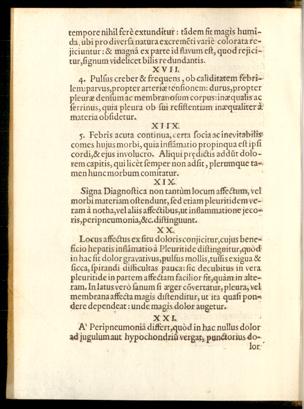 tempore nihil ferè extunditur: tãdem fit magis humi-
da, ubi pro diversâ natura excremẽti variè colorata re-
jiciuntur: & magnâ ex parte id flavum est, quod rejici-
tur, signum videlicet bilis redundantis.
XVII.
4. Pulsus creber & frequens, ob caliditatem febri-
lem: parvus, propter arteriæ tensionem: durus, propter
pleuræ densum ac membranosum corpus: inæqualis ac
serrinus, quia pleura ob sui resistentiam inæqualiter à
materia obsidetur.
XIIX.
5. Febris acuta continua, certa socia ac inevitabilis
comes hujus morbi, quia inflãmatio propinqua est ipsi
cordi, & ejus involucro. Aliqui prædictis addũt dolo-
rem capitis, qui licet semper non adsit, plerumque ta-
men hunc morbum comitatur.
XIX.
Signa Diagnostica non tantùm locum affectum, vel
morbi materiam ostendunt, sed etiam pleuritidem ve-
ram à notha, vel aliis affectibus, ut inflammatione jeco-
ris, peripneumonia, &c. distinguunt.
XX.
Locus affectus ex situ doloris conjicitur, cujus bene-
ficio hepatis inflãmatio à Pleuritide distinguitur, quòd
in hac sit dolor gravativus, pulsus mollis, tussis exigua &
sicca, spirandi difficultas pauca: sic decubitus in vera
pleuritide in partem affectam facilior fit, quàm in alte-
ram. In latus verò sanum si æger cõvertatur, pleura, vel
membrana affecta magis distenditur, ut ita quasi pon-
dere dependeat: unde magis dolor augetur.
XXI.
A' Peripneumoniâ differt, quòd in hac nullus dolor
ad jugulum aut hypochondriũ vergat, punctorius do-
lor